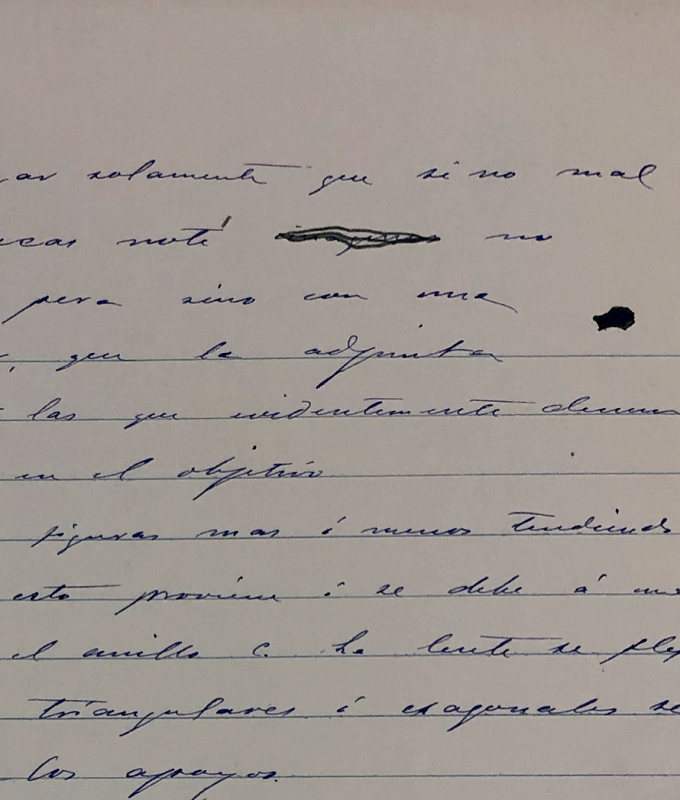 solamente que si no mal
noté no
pera sino con una
que la adjunta
las que evidentemente
en el objetivo
figuras mas ó menos tendiendo
esto proviene ó se debe á
el anillo C. La lente se
triangulares ó exagonales se
los apoyos.